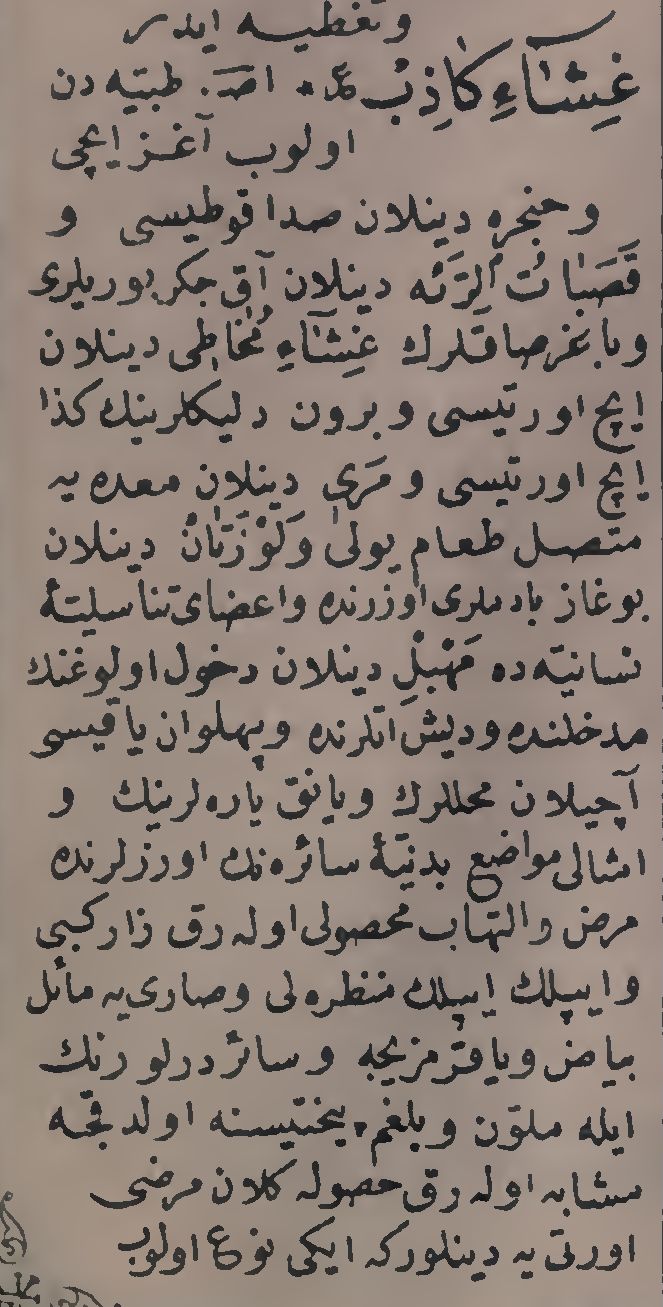 وتغطيه ايدر
غِشَآءِ كَاذِبْ عم. اصـ. طبيّه دن
اولوب آغز ايچى
وحنجره دينلان صدا قوطيسى و
قَصَبَاتُ اَلرِّئَه دينلان آق جكر بوريلرى
وبا نغرصاقلرك غِشَآءِ مُخَاطِى دينلان
ايچ اورتيسى وبرون دليكلرينك كذا
ايچ اورتيسى ومَرَى دينلان معده يه
متصل طعام يولى ولَوْزَتَانْ دينلان
بوغاز بادملرى اوزرنده واعضاى تناسليّۀ
نسائيّه ده مَهْبِلْ دينلان دخول اولوغنك
مدخلنده وديش اتلرنده وپهلوان ياقيسى
آچيلان محللرك ويانق ياره لرينك و
امثالى مواضع بدنيّۀ سائره نك اورزلرنده
مرض والتهاب محصولى اوله رق زار كبى
وايپلك ايپلك منظره لى وصارى يه مائل
بياض وياقرمزيجه وسائر درلو رنك
ايله ملوّن وبلغم يختيسنه اولدقجه
مشابه اوله رق حصوله كلان مرضى
اورتى يه دينلوركه ايكى نوع اولوب